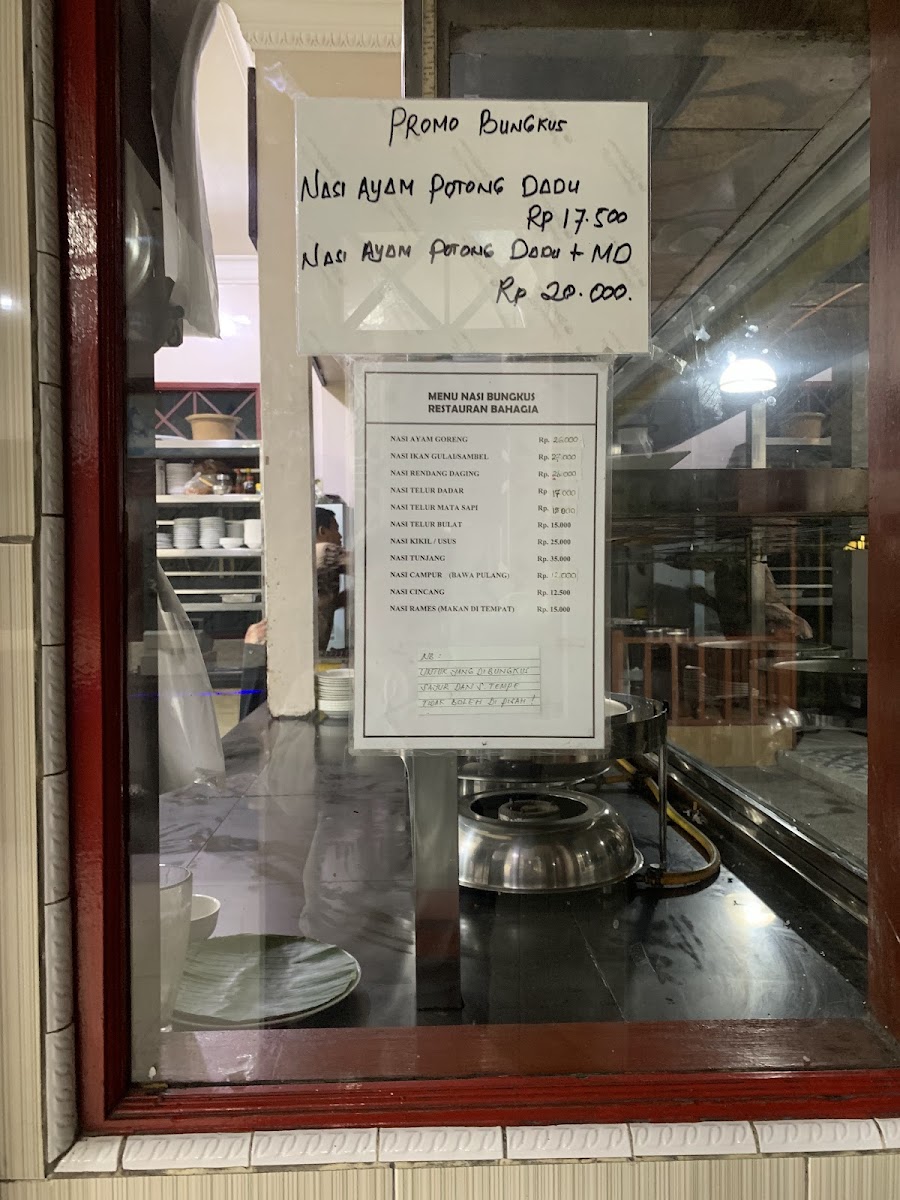 PROMO BUNGKUS
NASI AYAM POTONG DADU
Rp 17.500
NASI AYAM POTONG DADU + MD
Rp 20.000.
MENU NASI BUNGKUS
RESTAURAN BAHAGIA
NASI AYAM GORENG Rp. 26.000
NASI IKAN GULAI/SAMBEL Rp.
NASI RENDANG DAGING Rp. 26.000
NASI TELUR DADAR Rp 17.000
NASI TELUR MATA SAPI Rp.
NASI TELUR BULAT Rp. 15.000
NASI KIKIL / USUS Rp. 25.000
NASI TUNJANG Rp. 35.000
NASI CAMPUR (BAWA PULANG) Rp.
NASI CINCANG Rp. 12.500
NASI RAMES (MAKAN DI TEMPAT) Rp. 15.000
NB :
UNTUK YANG DI BUNGKUS
SAYUR DAN S. TEMPE
TIDAK BOLEH DI PISAH